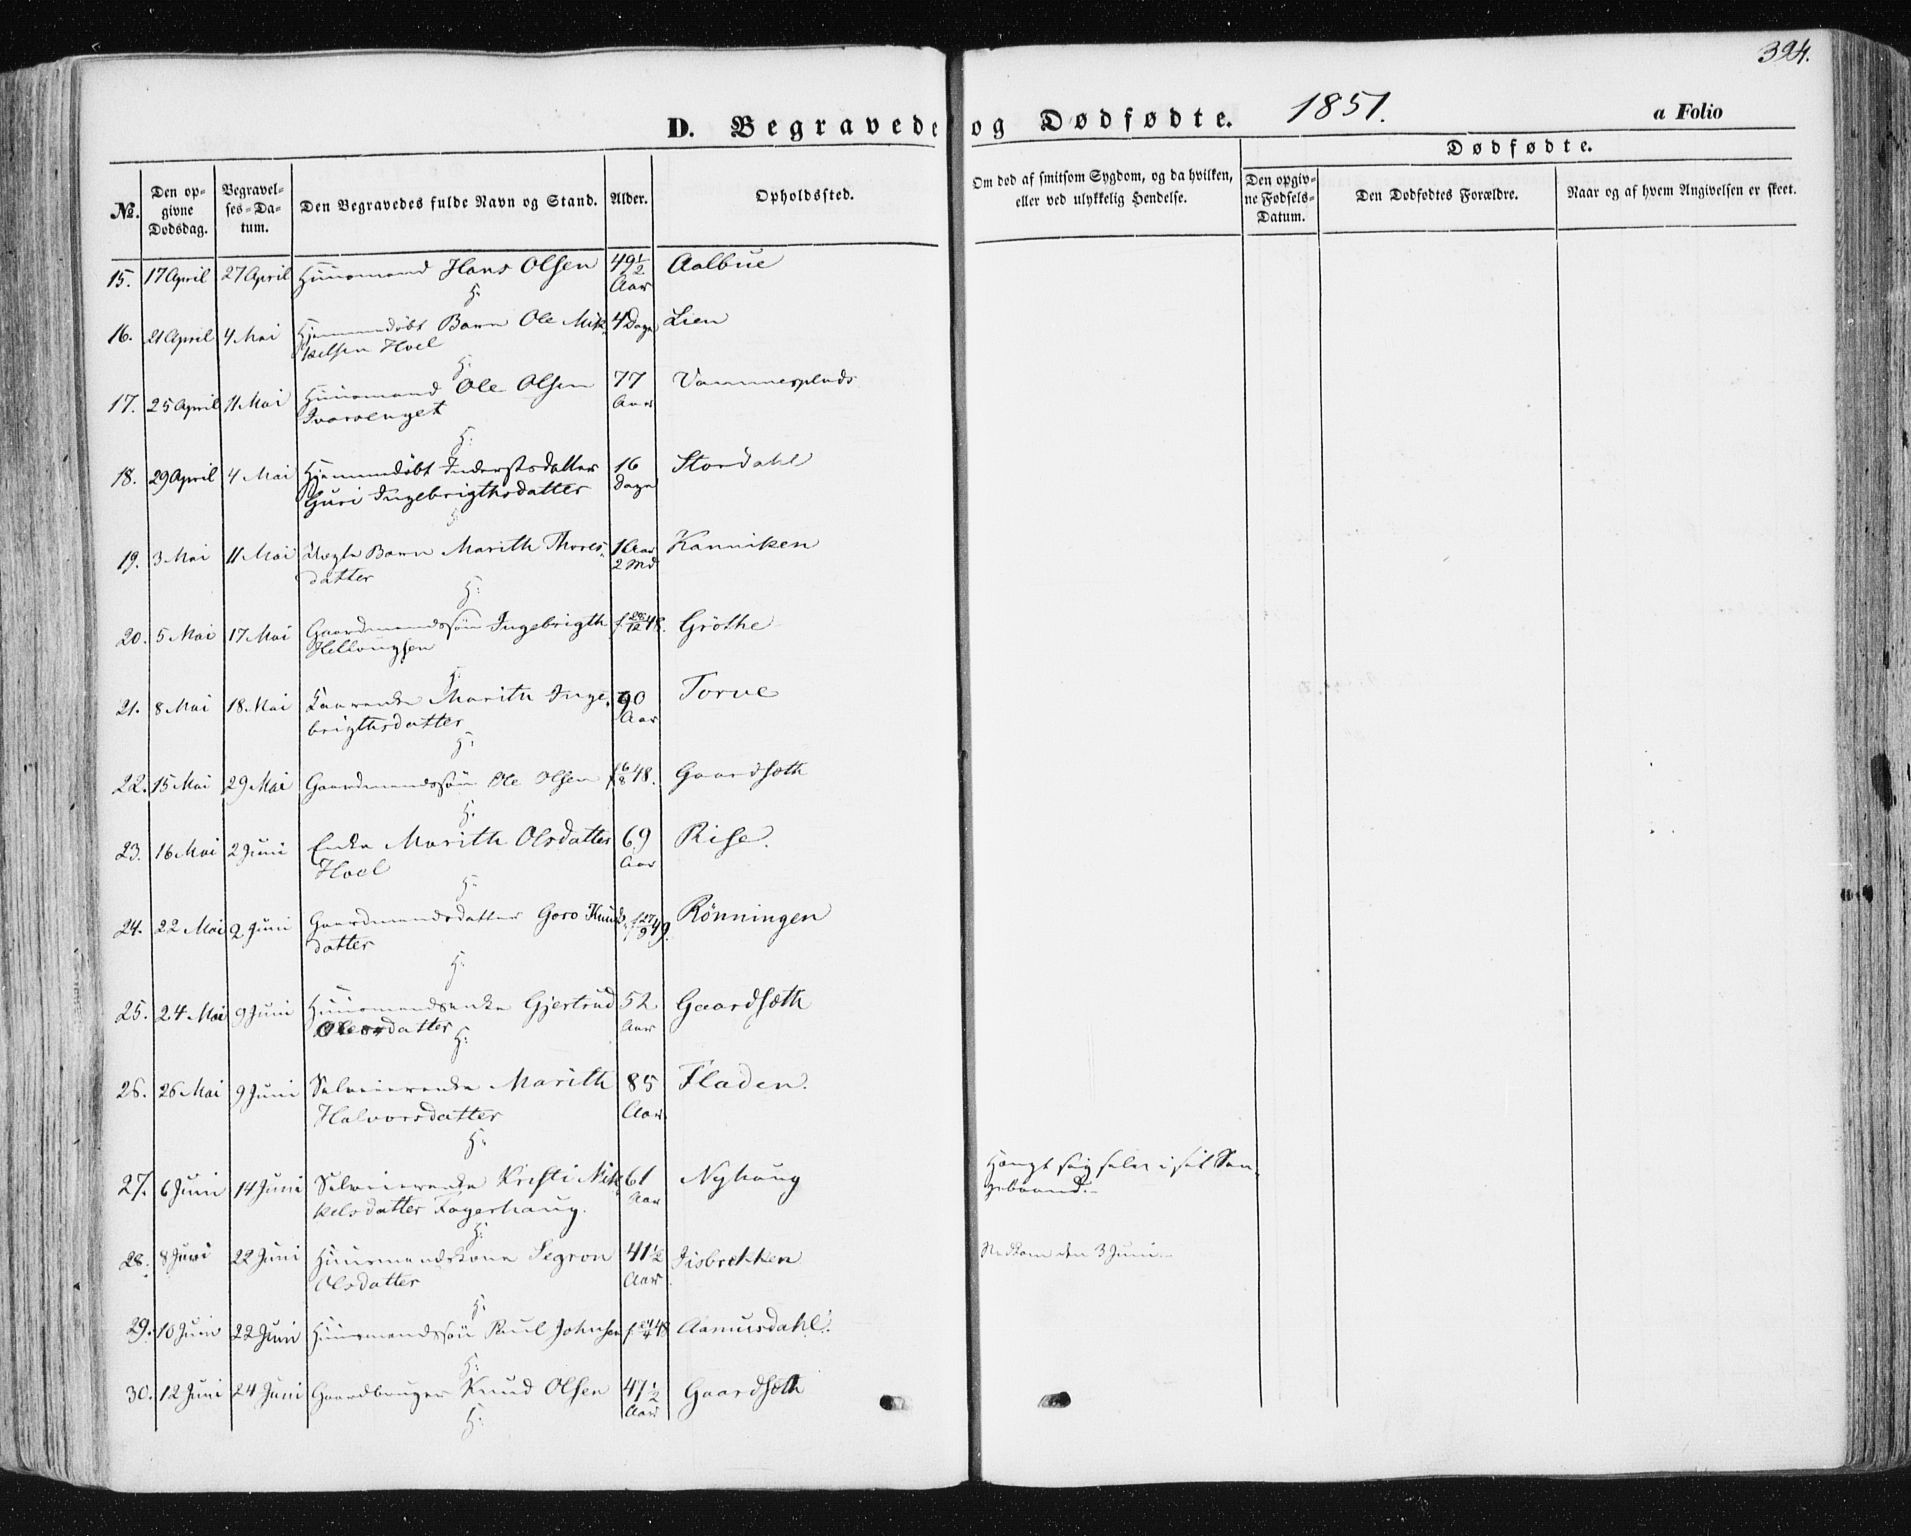 394.
D. Begravede og Dødfødte. 1851. a Folio
Dødfødte.
No.
Den opgivne Dødsdag.
Begravelses-Datum.
Den Begravedes fulde Navn og Stand.
Alder.
Opholdssted.
Om død af smitsom Sygdom, og da hvilken, eller ved ulykkelig Hendelse.
Den opgivne Fødsels-Datum.
Den Dødfødtes Forældre.
Naar og af hvem Angivelsen er skeet.
15. 17 April 27 April Huusmand Hans Olsen 49 1/2 Aar Aalbue
H:
16. 21 April 4 Mai Hjemmedøbt Barn Ole Mik- 4 Dage Lien
kelsen Hoel
H:
17. 25 April 11 Mai Huusmand Ole Olsen 77 Aar Vammesplads
Ivarsenget
H:
18. 29 April 4 Mai Hjemmedøbt Inderstsdatter 16 Dage Stordahl
Guri Ingebrigthsdatter
H:
19. 3 Mai 11 Mai Uægte Barn Marith Thores- 1 Aar 2 Md Kanniken
datter
H:
20. 5 Mai 17 Mai Gaardmandssøn Ingebrigth 48. Gröthe
Hellougsen
H:
21. 8 Mai 18 Mai Kaarenke Marith Inge- 90 Aar Torve
brigthsdatter
H:
22. 15 Mai 29 Mai Gaardmandssøn Ole Olsen f 6/8 48. Gaardsæth
H:
23. 16 Mai 2 Juni Enke Marith Olsdatter 69 Aar Rise.
Hoel
H:
24. 22 Mai 2 Juni Gaardmandsdatter Goro Knuds- f 27/9 49. Rönningen
datter
H:
25. 24 Mai 9 Juni Huusmandsenke Gjertrud 52 Aar Gaardsæth
Olesdatter
H:
26. 26 Mai 9 Juni Selveierenke Marith 85 Aar Fladen.
Halvorsdatter
H:
27. 6 Juni 14 Juni Selveierenke Kristi Mik- 61 Aar Nyhaug Hængt sig selv i sit Sen-
kelsdatter Fagerhaug. gebaand.
H:
28. 8 Juni 22 Juni Huusmandskone Segron 41 1/2 Aar Iisbrekken Nedkom den 3 Juni
Olsdatter
H:
29. 10 Juni 22 Juni Huusmandssøn Poul Johnsen 48 Aamusdahl.
H:
30. 12 Juni 24 Juni Gaardbruger Knud Olsen 47 1/2 Aar Gaardsæth
H: